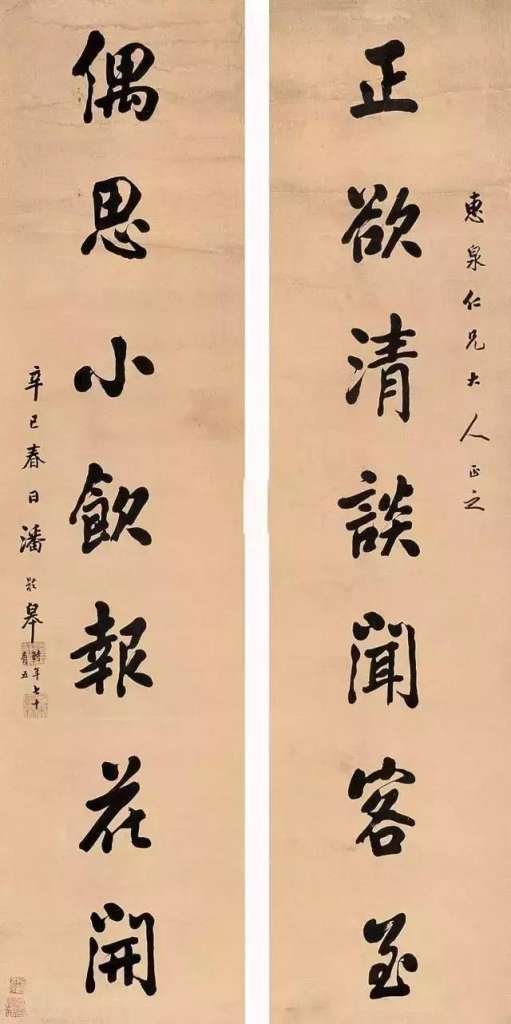 惠泉仁兄大人正之
正欲清談聞客至
偶思小飲報花開
辛巳春日潘齡皋
時年七十有五